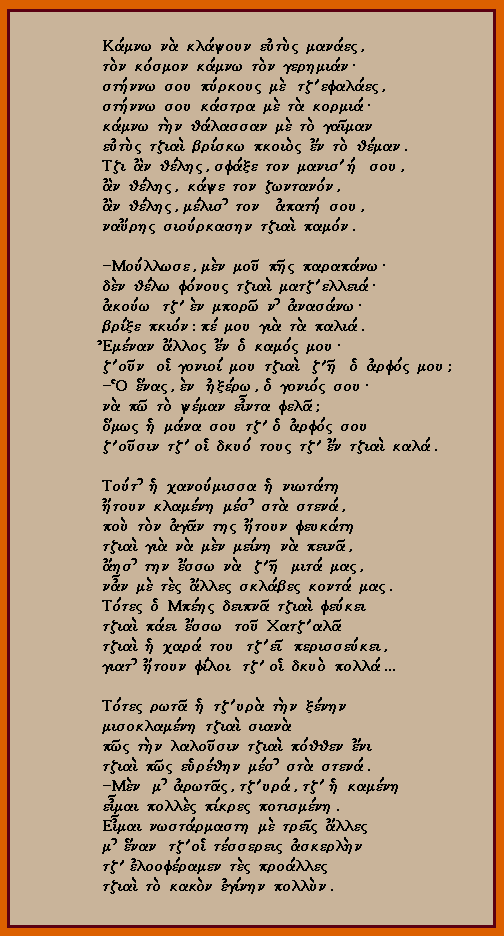 Κάμνω νὰ κλάψουν εὐτὺς μανάες,
τὸν κόσμον κάμνω τὸν γερημιάν·
στήννω σου πύρκους μὲ τζ̓εφαλάες,
στήννω σου κάστρα μὲ τὰ κορμιά·
κάμνω τὴν θάλασσαν μὲ τὸ γαῖμαν
εὐτὺς τζιαὶ βρίσκω πκοιὸς ἔν τὸ θέμαν.
Τζι ἂν θέλης, σφάξε τον μανισ̓ή σου,
ἂν θέλης, κάψε τον ζωντανόν,
ἂν θέλης, μέλισ᾿ τον ἀπατή σου,
ναὕρης σιούρκασην τζιαὶ παμόν.

–Μούλλωσε, μὲν μοῦ πῆς παραπάνω·
δὲν θέλω φόνους τζιαὶ ματζ̓ελλειά·
ἀκούω τζ̓ ἐν μπορῶ ν᾿ ἀνασάνω·
βρίξε πκιόν: πέ μου γιὰ τὰ παλιά.
Ἐμέναν ἄλλος ἔν ὁ καμός μου·
ζ̓οῦν οἱ γονιοί μου τζιαὶ ζ̓ῆ ὁ ἀρφός μου;
–Ὁ ἕνας, ἐν ἠξέρω, ὁ γονιός σου·
νὰ πῶ τὸ ψέμαν εἶντα φελᾶ;
ὅμως ἡ μάνα σου τζ̓ ὁ ἀρφός σου
ζ̓οῦσιν τζ̓ οἱ δκυό τους τζ̓ ἔν τζιαὶ καλά.

Τούτ᾿ ἡ χανούμισσα ἡ νιωτάτη
ἤτουν κλαμένη μέσ᾿ στὰ στενά,
ποὺ τὸν ἀγᾶν της ἤτουν φευκάτη
τζιαὶ γιὰ νὰ μὲν μείνη νὰ πεινᾶ,
ἄησ᾿ την ἔσσω νὰ ζ̓ῆ μιτά μας,
νἆν μὲ τὲς ἄλλες σκλάβες κοντά μας.
Τότες ὁ Μπέης δειπνᾶ τζιαὶ φεύκει
τζιαὶ πάει ἔσσω τοῦ Χατζ̓αλᾶ
τζιαὶ ἡ χαρά του τζ̓εῖ περισσεύκει,
γιατ᾿ ἤτουν φίλοι τζ̓ οἱ δκυὸ πολλά...

Τότες ρωτᾶ ἡ τζ̓υρὰ τὴν ξένην
μισοκλαμένη τζιαὶ σιανὰ
πῶς τὴν λαλοῦσιν τζιαὶ πόθθεν ἔνι
τζιαὶ πῶς εὑρέθην μέσ᾿ στὰ στενά.
–Μὲν μ᾿ ἀρωτᾶς, τζ̓υρά, τζ̓ ἡ καμένη
εἶμαι πολλὲς πίκρες ποτισμένη.
Εἶμαι νωστάρμαστη μὲ τρεῖς ἄλλες
μ᾿ ἕναν τζ̓οἱ τέσσερεις ἀσκερλὴν
τζ̓ ἐλοοφέραμεν τὲς προάλλες
τζιαὶ τὸ κακὸν ἐγίνην πολλὺν.